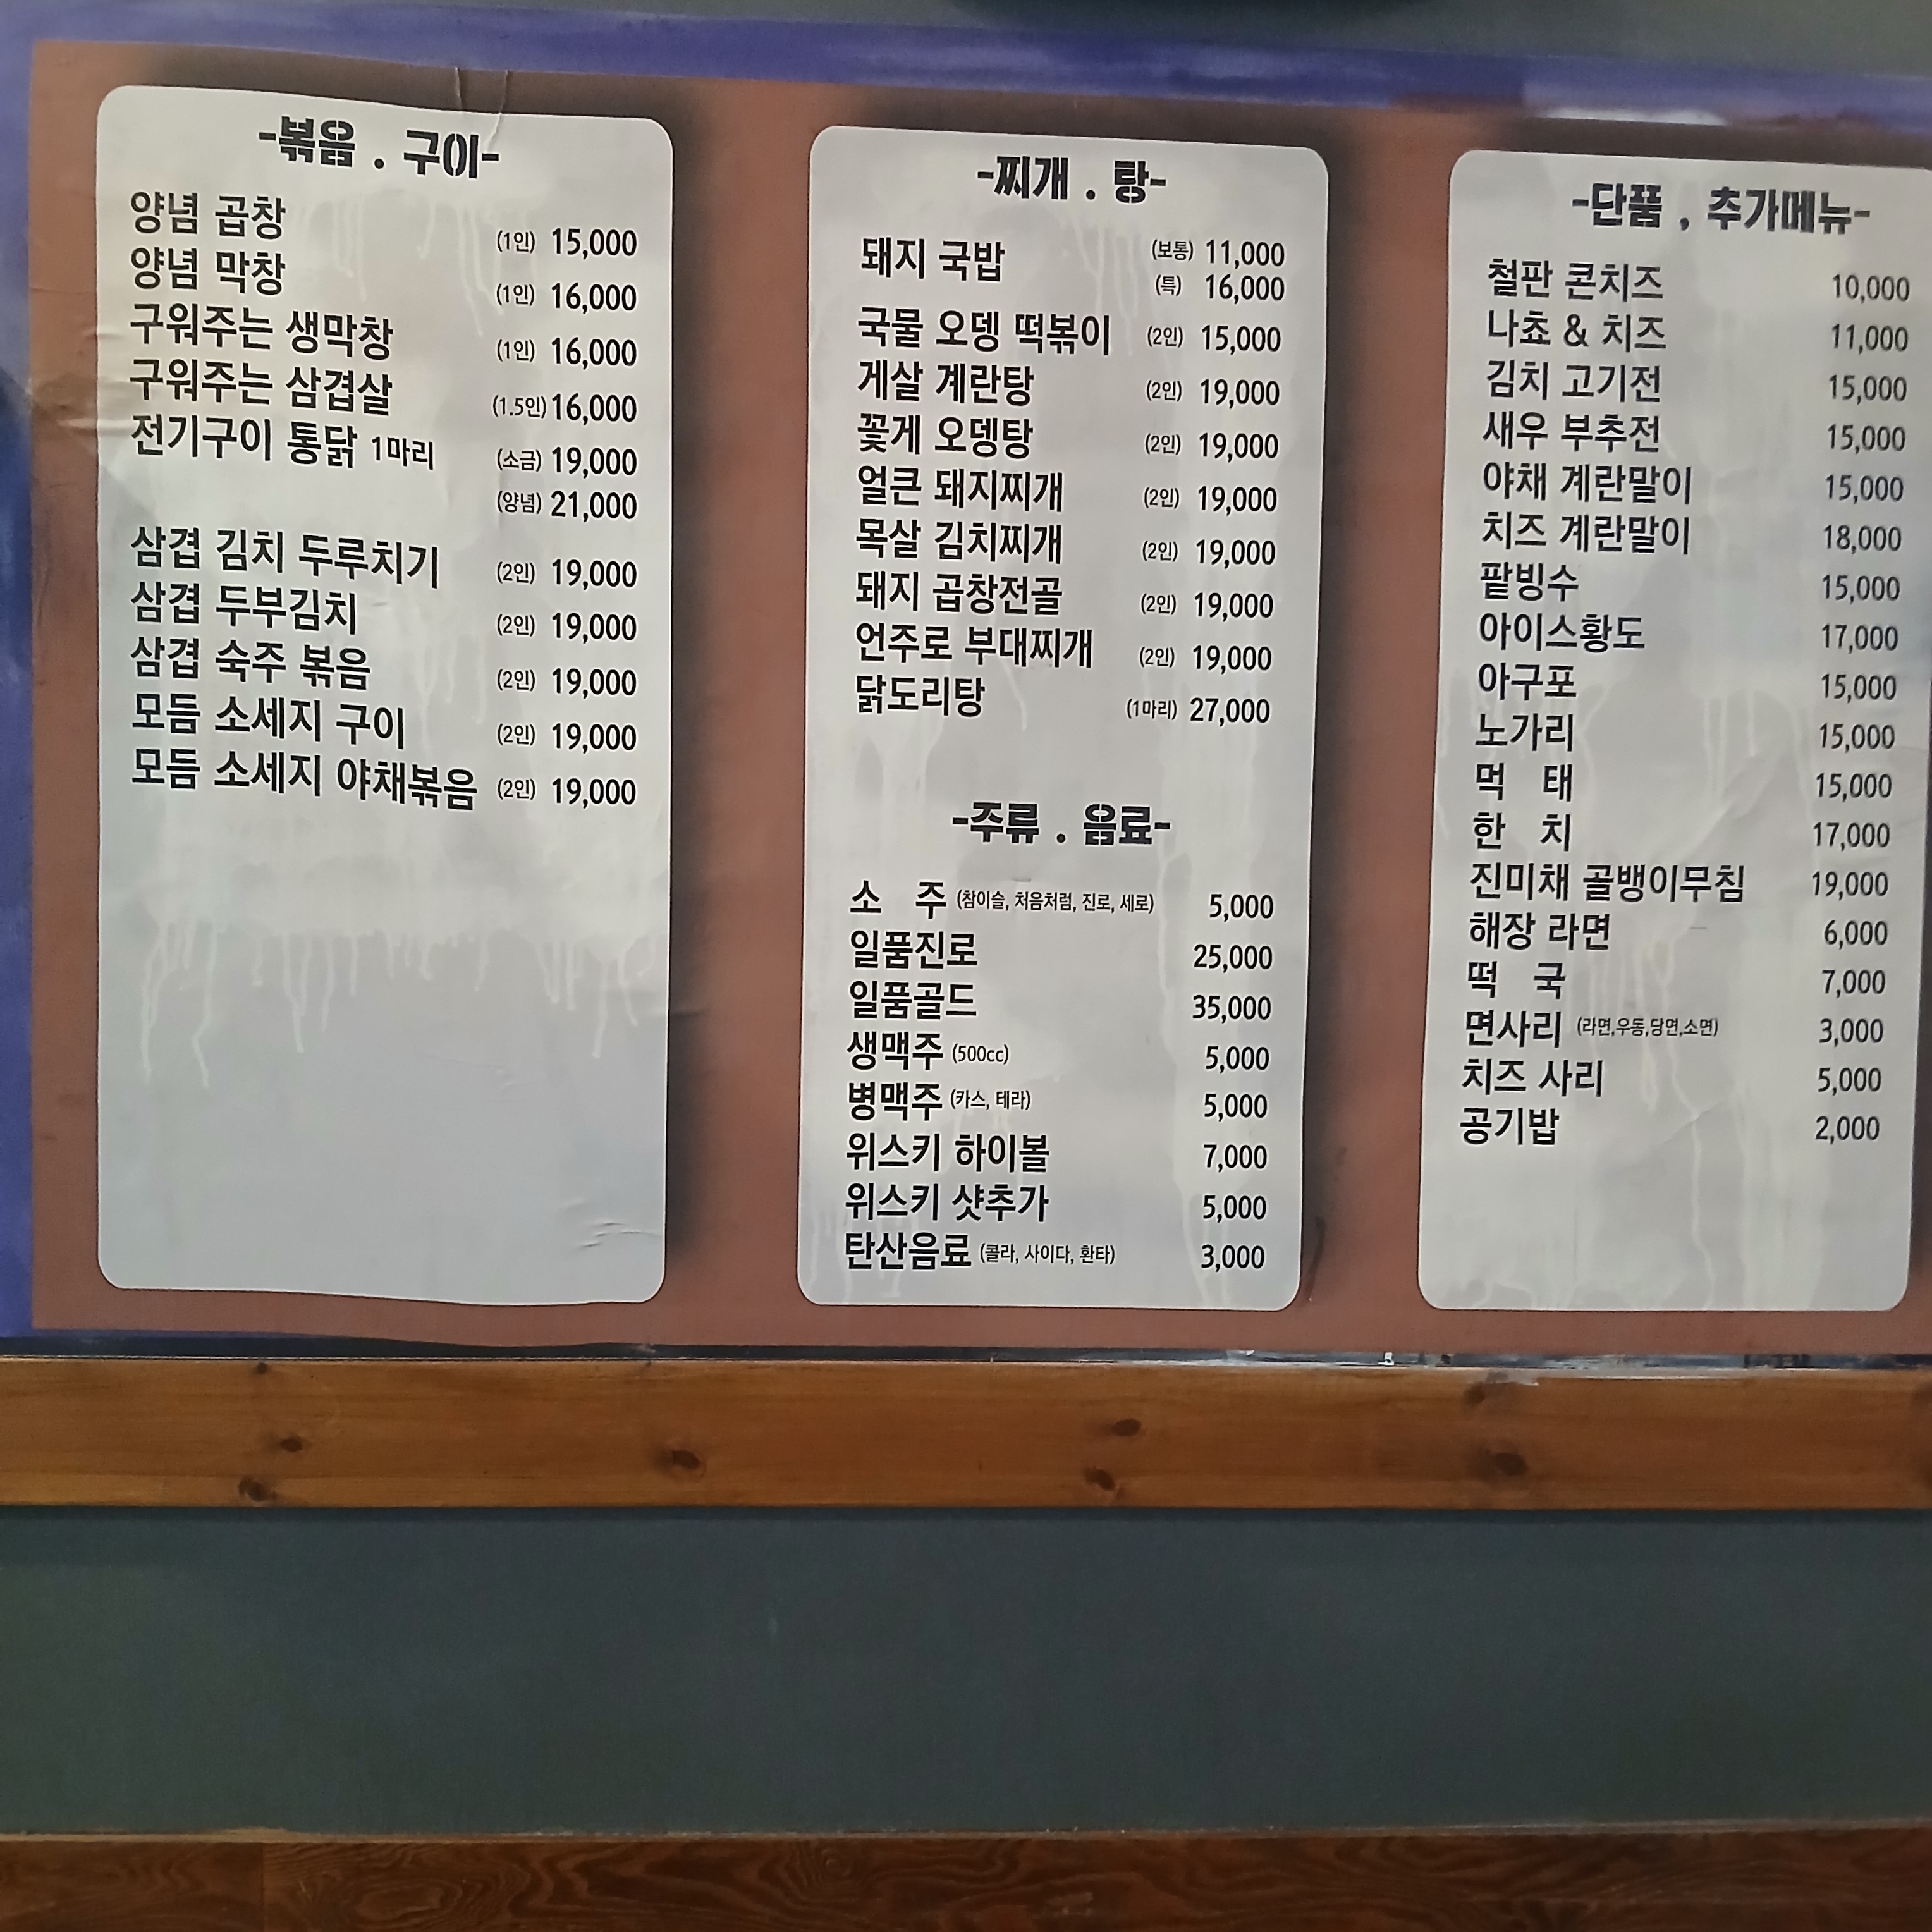 -볶음 . 구이-
양념 곱창 (1인) 15,000
양념 막창 (1인) 16,000
구워주는 생막창 (1인) 16,000
구워주는 삼겹살 (1.5인) 16,000
전기구이 통닭 1마리 (소금) 19,000
(양념) 21,000
삼겹 김치 두루치기 (2인) 19,000
삼겹 두부김치 (2인) 19,000
삼겹 숙주 볶음 (2인) 19,000
모듬 소세지 구이 (2인) 19,000
모듬 소세지 야채볶음 (2인) 19,000
-찌개 . 탕-
돼지 국밥 (보통) 11,000
(특) 16,000
국물 오뎅 떡볶이 (2인) 15,000
게살 계란탕 (2인) 19,000
꽃게 오뎅탕 (2인) 19,000
얼큰 돼지찌개 (2인) 19,000
목살 김치찌개 (2인) 19,000
돼지 곱창전골 (2인) 19,000
언주로 부대찌개 (2인) 19,000
닭도리탕 (1마리) 27,000
-주류 . 음료-
소 주 (참이슬, 처음처럼, 진로, 세로) 5,000
일품진로 25,000
일품골드 35,000
생맥주 (500cc) 5,000
병맥주 (카스, 테라) 5,000
위스키 하이볼 7,000
위스키 샷추가 5,000
탄산음료 (콜라, 사이다, 환타) 3,000
-단품 , 추가메뉴-
철판 콘치즈 10,000
나쵸 & 치즈 11,000
김치 고기전 15,000
새우 부추전 15,000
야채 계란말이 15,000
치즈 계란말이 18,000
팥빙수 15,000
아이스황도 17,000
아구포 15,000
노가리 15,000
먹 태 15,000
한 치 17,000
진미채 골뱅이무침 19,000
해장 라면 6,000
떡 국 7,000
면사리 (라면,우동,당면,소면) 3,000
치즈 사리 5,000
공기밥 2,000